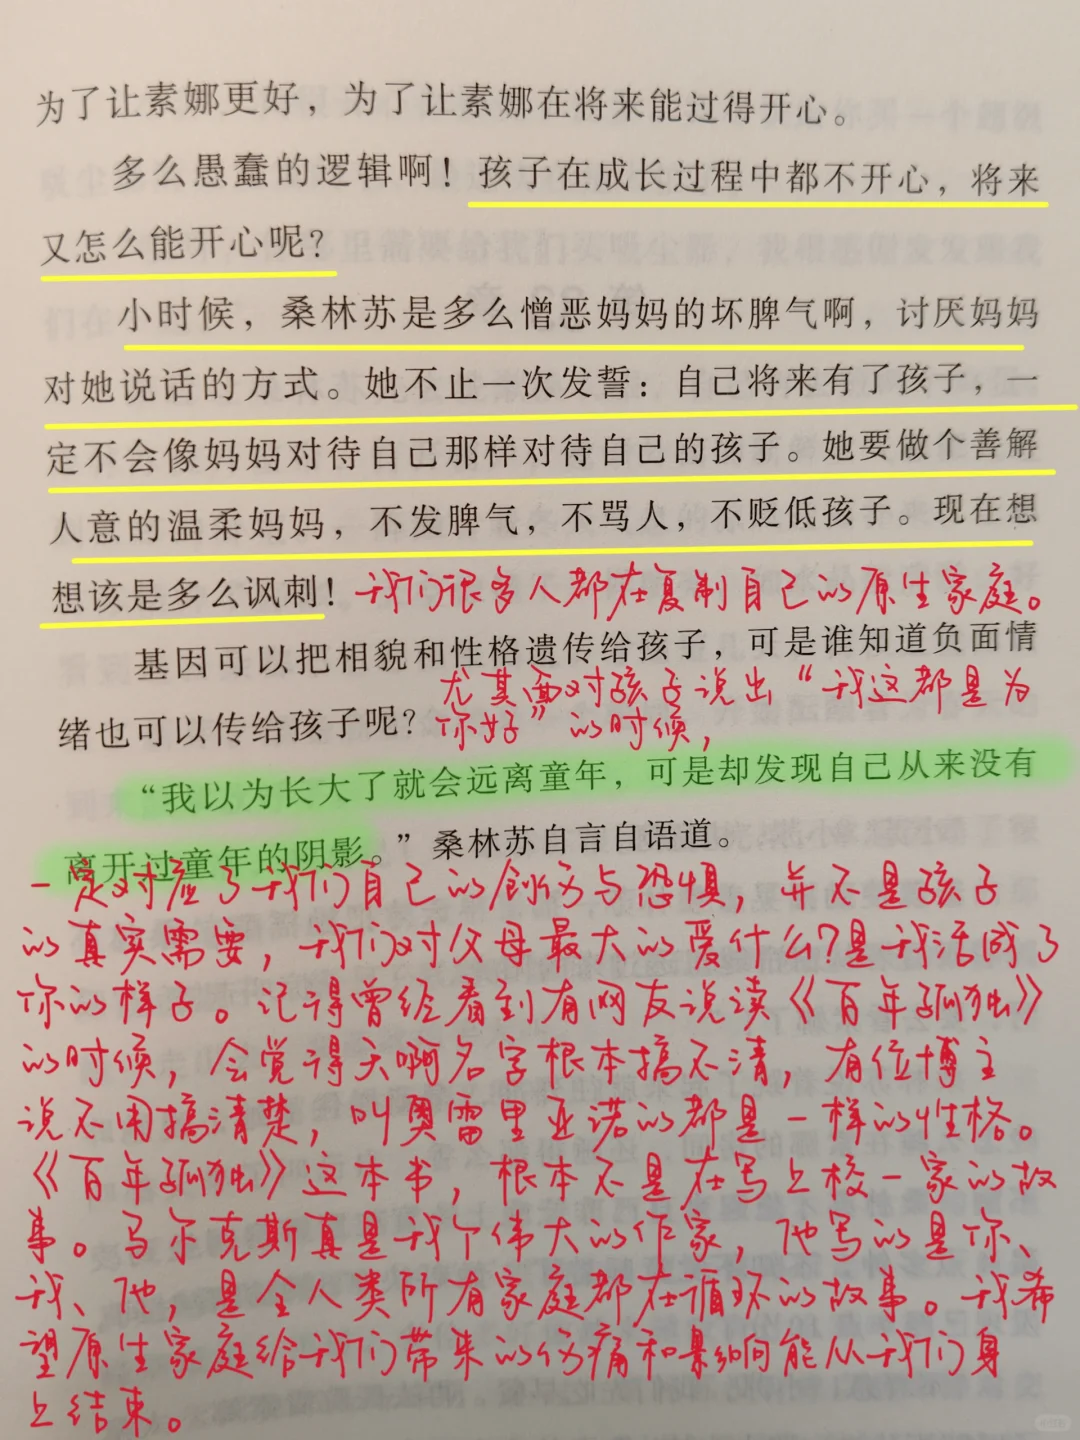 为了让素娜更好，为了让素娜在将来能过得开心。
多么愚蠢的逻辑啊！孩子在成长过程中都不开心，将来
又怎么能开心呢？
小时候，桑林苏是多么憎恶妈妈的坏脾气啊，讨厌妈妈
对她说话的方式。她不止一次发誓：自己将来有了孩子，一
定不会像妈妈对待自己那样对待自己的孩子。她要做个善解
人意的温柔妈妈，不发脾气，不骂人，不贬低孩子。现在想
想该是多么讽刺！我们很多人都在复制自己的原生家庭。
基因可以把相貌和性格遗传给孩子，可是谁知道负面情
绪也可以传给孩子呢？
尤其对孩子说出“我这都是为
你好”的时候，
“我以为长大了就会远离童年，可是却发现自己从来没有
离开过童年的阴影。”桑林苏自言自语道。
一定对应了我们自己的创伤与恐惧，并不是孩子
的真实需要，我们对父母最大的爱什么？是我活成了
你的样子。记得曾经看到有网友说读《百年孤独》
的时候，会觉得天啊名字根本搞不清 有位博主
说不用搞清楚，叫奥雷里亚诺的都是一样的性格。
《百年孤独》这本书，根本不是在写上校一家的故
事。马尔克斯真是我个伟大的作家，他写的是你、
我、他，是全人类所有家庭都在循环的故事。我希
望原生家庭给我们带来的伤痛和影响能从我们身
上结束。